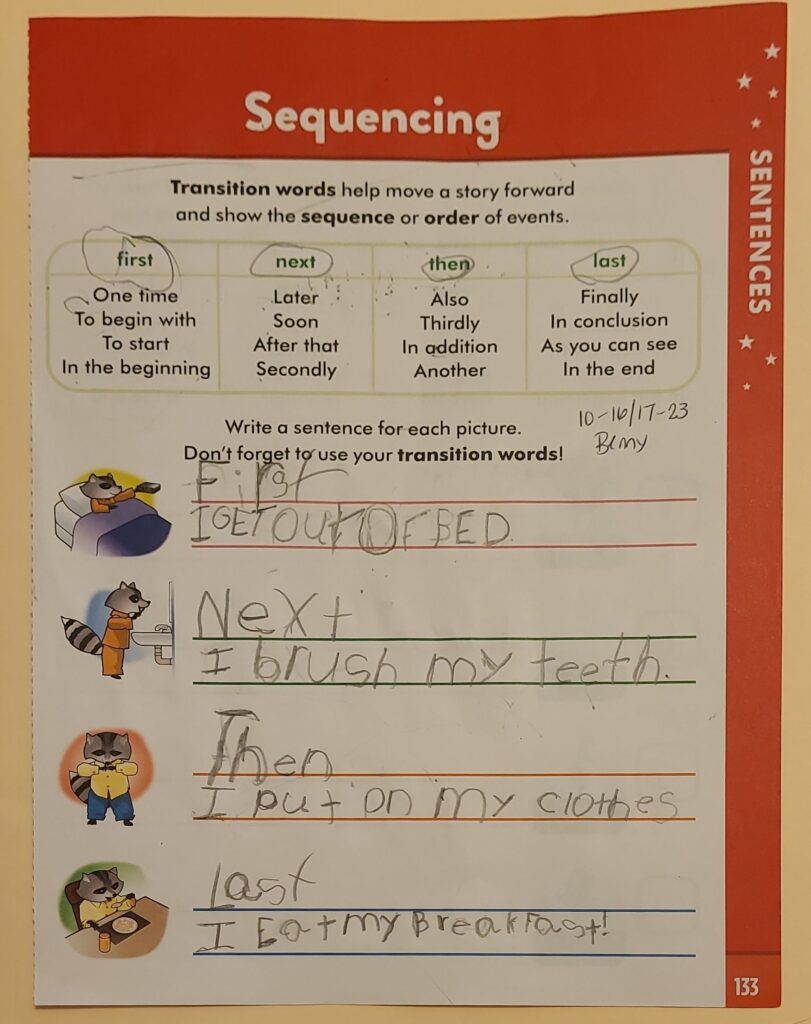 Sequencing
SENTENCES
Transition words help move a story forward
and show the sequence or order of events.
first next then last
One time Later Also Finally
To begin with Soon Thirdly In conclusion
To start After that In addition As you can see
In the beginning Secondly Another In the end
Write a sentence for each picture.
Don't forget to use your transition words!
10-16/17-23
First
I GET OUt OF BED.
NeXt
I brush my teeth.
Then
I put on my clothes
Last
I Eat my BreakFast!
133